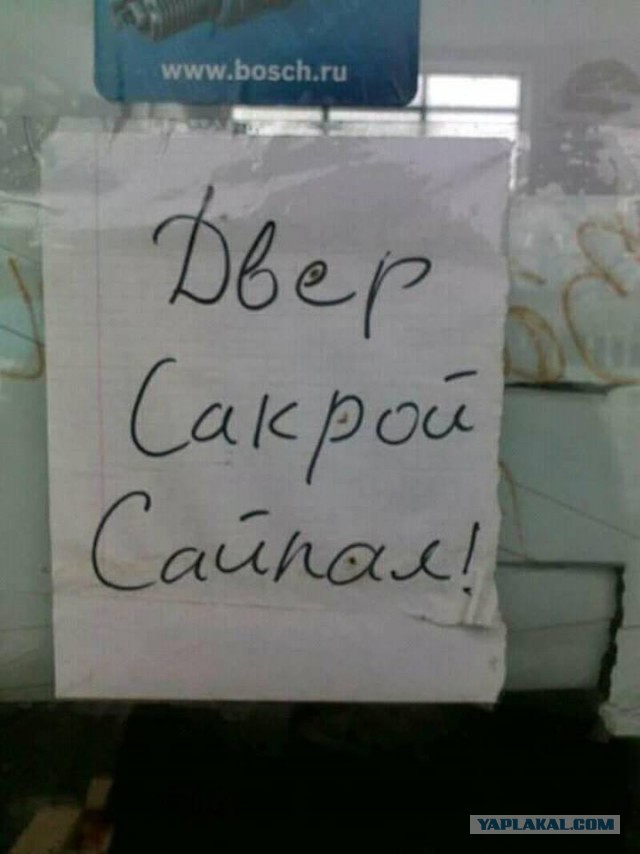 www.bosch.ru
Двер
Сакрой
Сайпал!
YAPLAKAL.COM